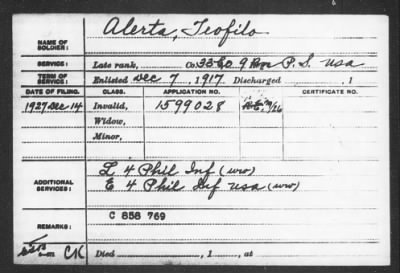 NAME OF SOLDIER: Alerta, Teofilo
SERVICE: Late rank, Co. 33 Co 9 P. S. USA
TERM OF SERVICE: Enlisted Dec 7, 1917 Discharged , 1
DATE OF FILING. CLASS. APPLICATION NO. CERTIFICATE NO.
1927 Dec 14 Invalid, 1599028
Widow,
Minor,
ADDITIONAL SERVICES: L 4 Phil Inf (WW)
E 4 Phil Inf USA (WW)
C 858 769
REMARKS:
CK Died , 1 , at